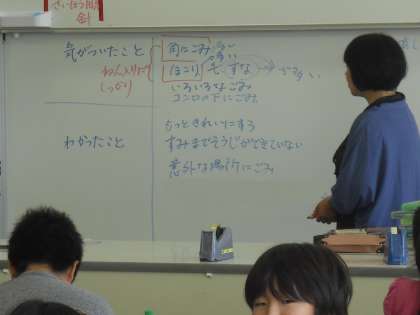 さいほう用具
針
気がついたこと
角にごみ 多い
ねん入りに
しっかり
ほこり 毛 すな
いろいろなごみ
コンロの下にごみ
わかったこと
もっときれいにする
すみまでそうじができていない
意外な場所にごみ